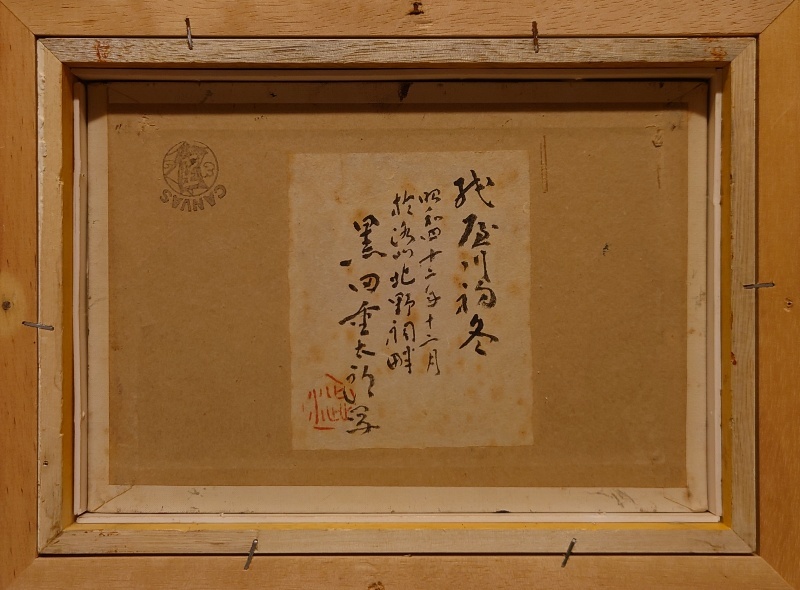 紙屋川初冬
昭和四十二年十二月
於洛北野祠畔
黒田重太郎写
CANVAS